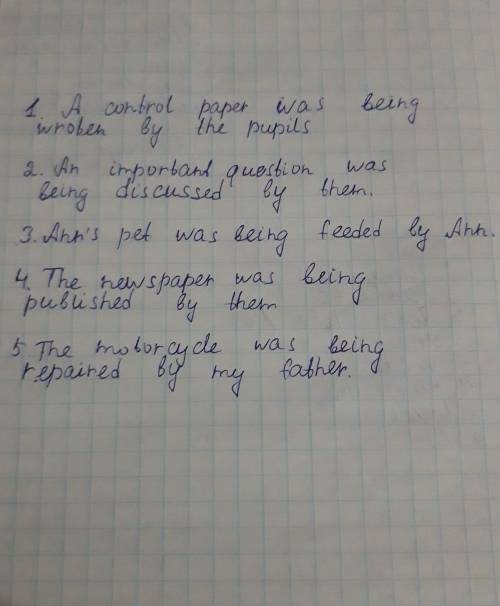 1. A control paper was being
wroten by the pupils
2. An important question was
being discussed by them.
3. Ann's pet was being feeded by Ann.
4. The newspaper was being
published by them
5 The motorcycle was being
repaired by my father.